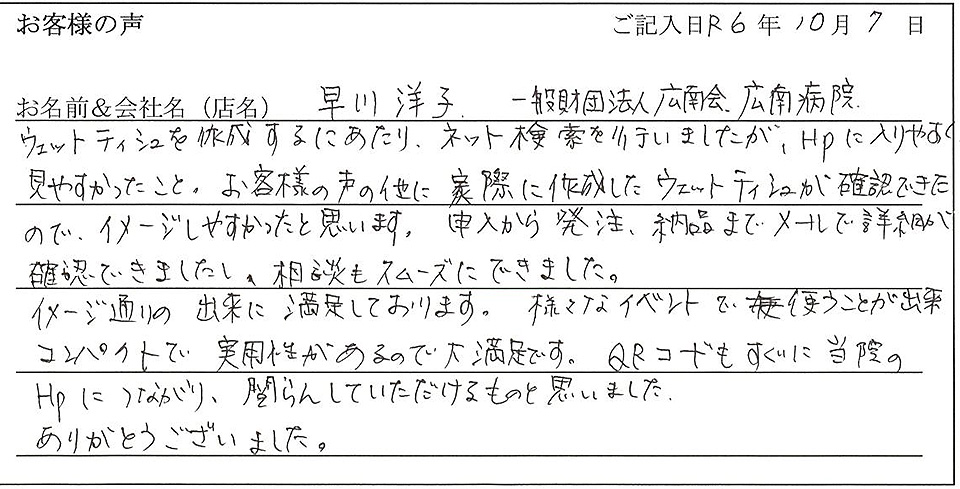 お客様の声 ご記入日R6年10月7日
お名前&会社名（店名） 早川 洋子 一般財団法人広南会 広南病院
ウェットティシュを作成するにあたり、ネット検索を行いましたが、Hpに入りやすく
見やすかったこと。お客様の声の他に実際に作成したウェットティシュが確認できた
ので、イメージしやすかったと思います。申入から発注、納品までメールで詳細が
確認できましたし、相談もスムーズにできました。
イメージ通りの出来に満足しております。様々なイベントで使うことが出来
コンパクトで実用性があるので大満足です。QRコードもすぐに当院の
Hpにつながり、閲らんしていただけるものと思いました。
ありがとうございました。